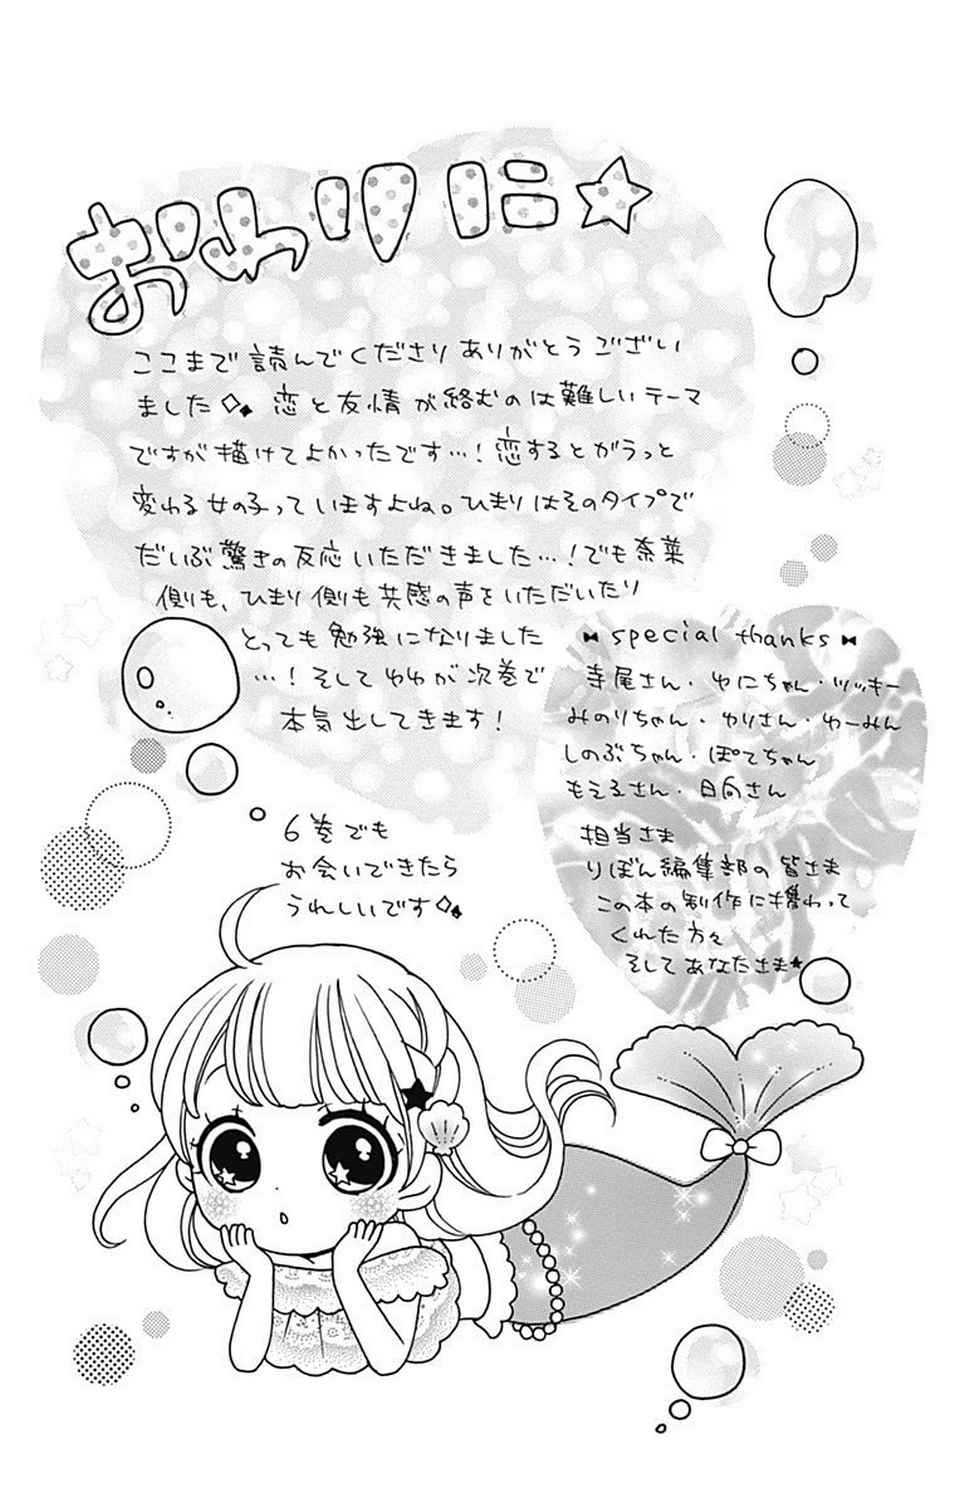 おわりに☆
ここまで読んでくださりありがとうござい
ました 恋と友情が絡むのは難しいテーマ
ですが描けてよかったです…！恋するとがらっと
変わる女の子っていますよね。ひまりはそのタイプで
だいぶ驚きの反応いただきました…！でも奈菜
側も、ひまり側も共感の声をいただいたり
とっても勉強になりました
…！そしてゆゆが次巻で
本気出してきます！
6巻でも
お会いできたら
うれしいです
special thanks
寺尾さん・ゆにちゃん・ツッキー
みのりちゃん・ゆりさん・ゆーみん
しのぶちゃん・ぽてちゃん
もえるさん・日向さん
担当さま
りぼん編集部の皆さま
この本の制作に携わって
くれた方々
そしてあなたさま★